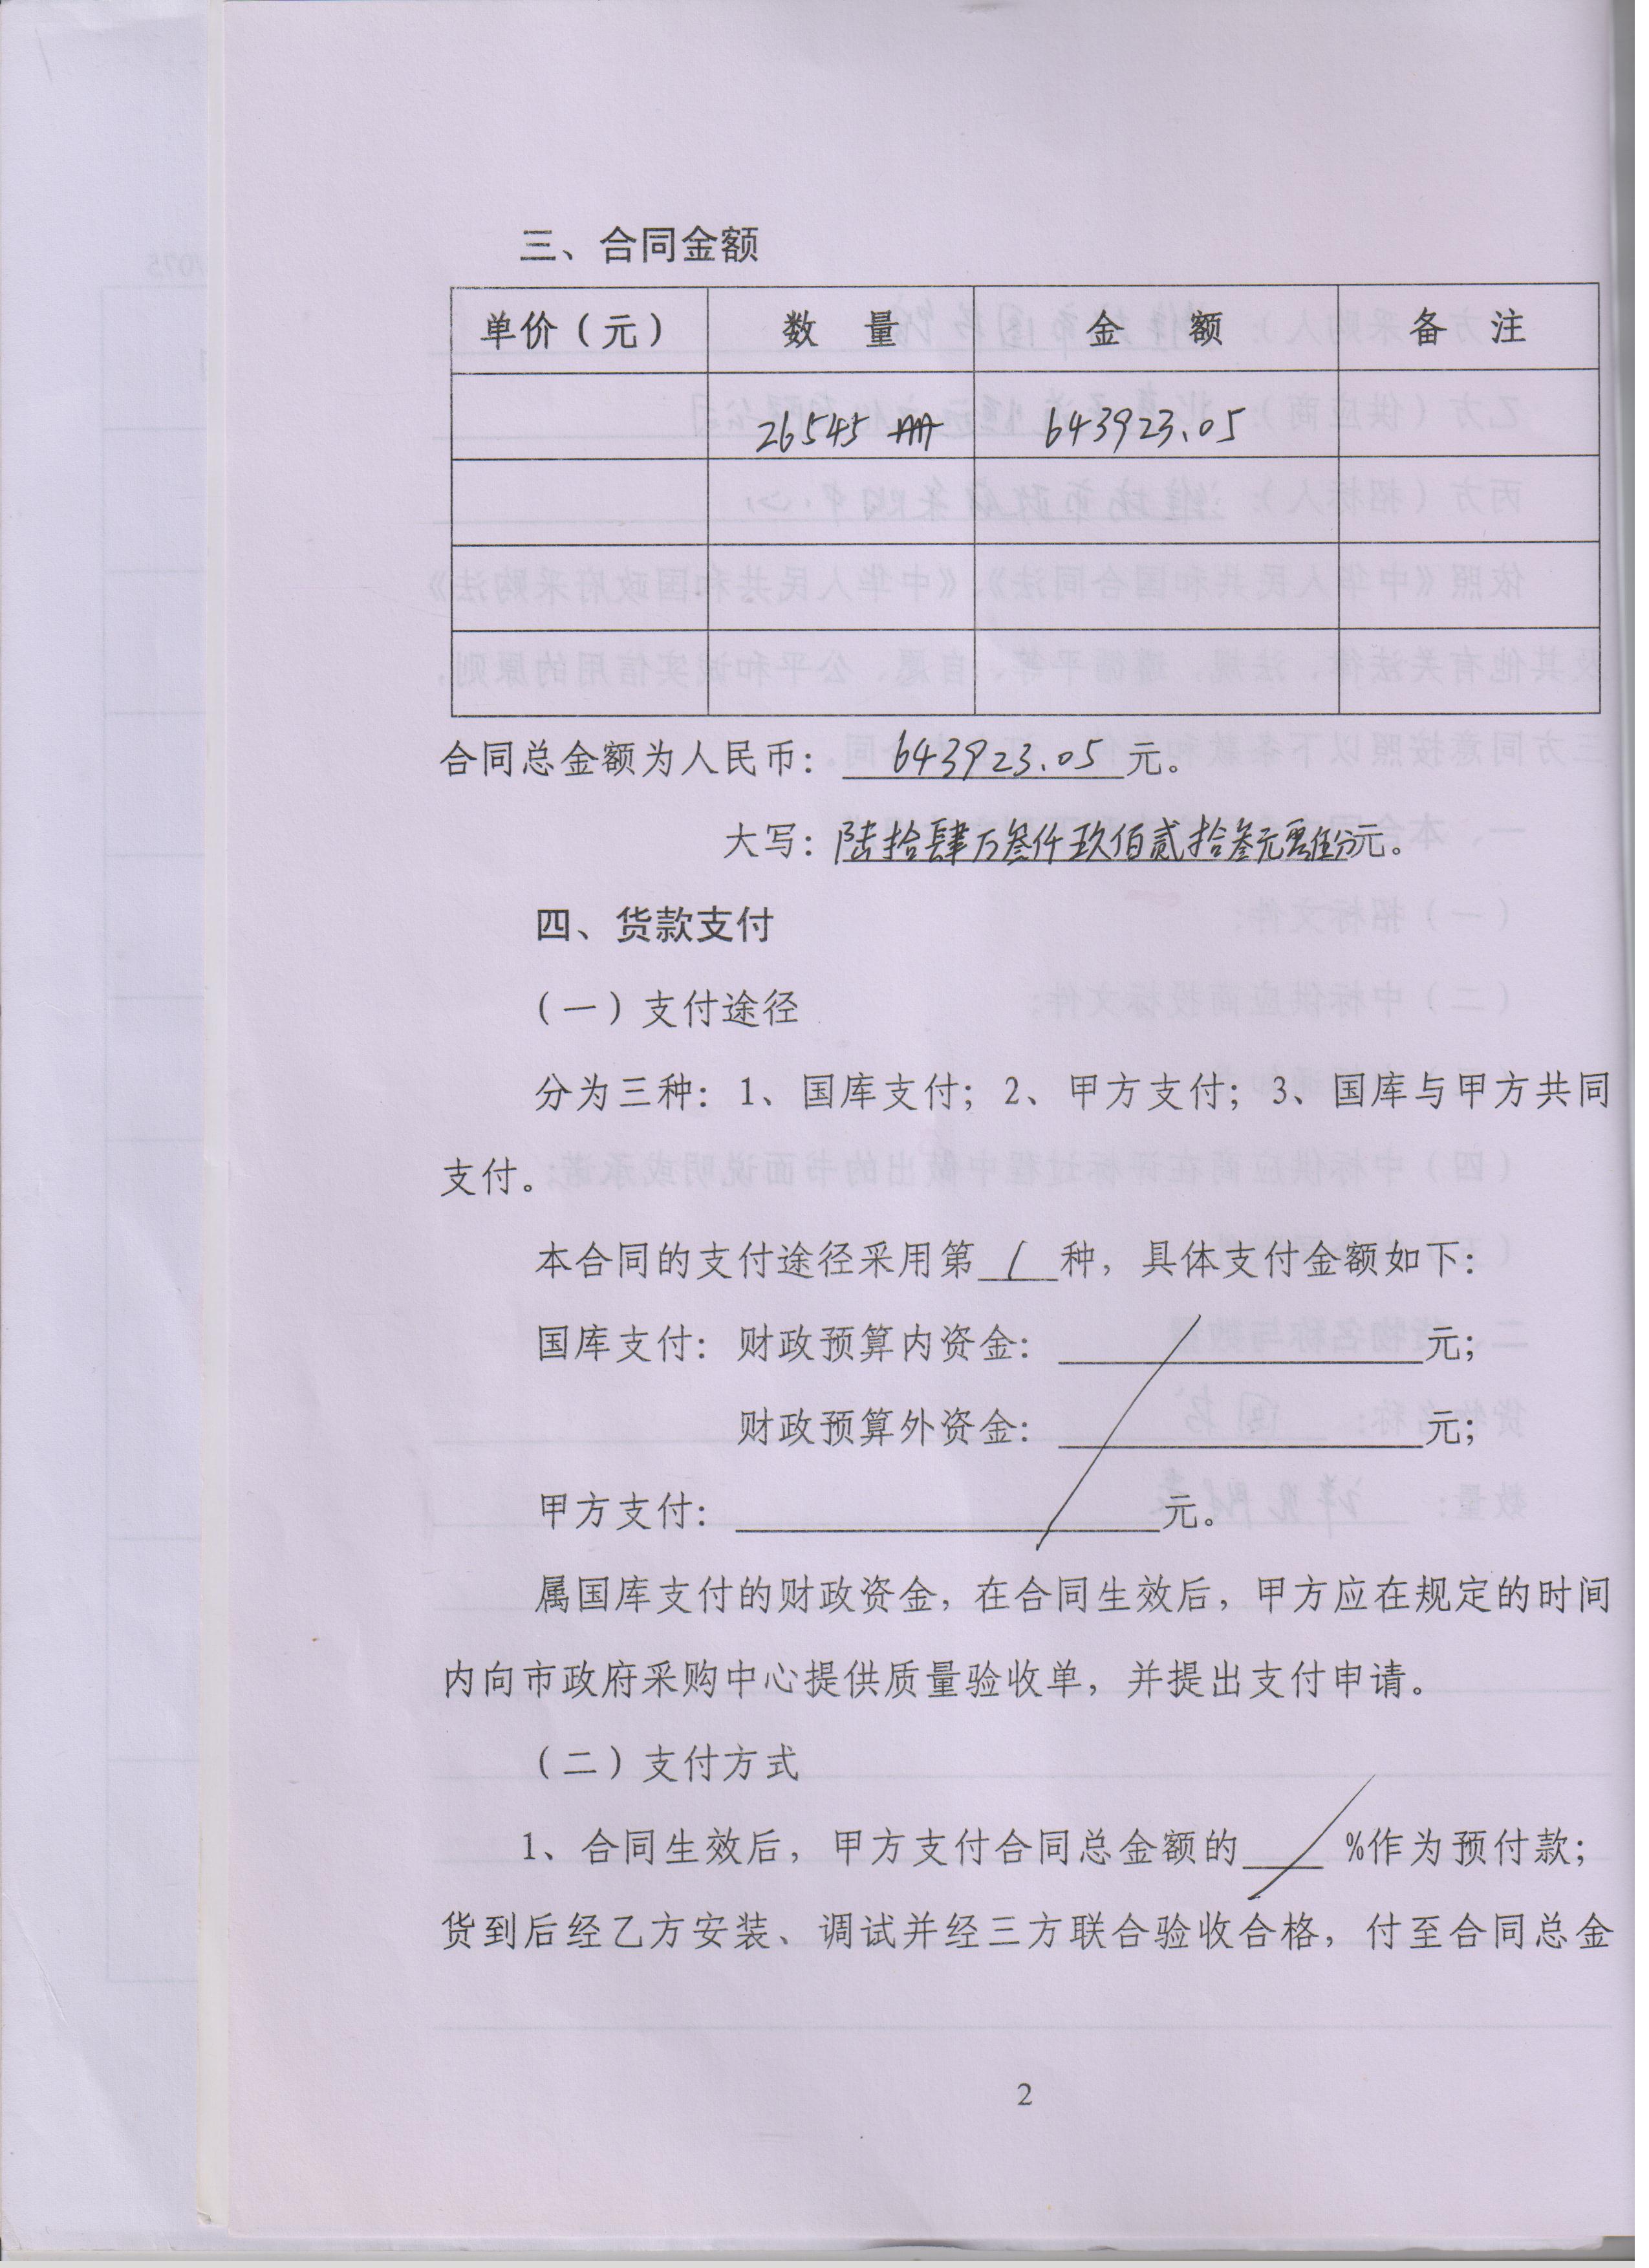 三、合同金额
单价（元） 数 量 金 额 备 注
26545 册 643923.05
合同总金额为人民币：643923.05元。
大写：陆拾肆万叁仟玖佰贰拾叁元零伍分元。
四、货款支付
（一）支付途径
分为三种：1、国库支付；2、甲方支付；3、国库与甲方共同
支付。
本合同的支付途径采用第1种，具体支付金额如下：
国库支付：财政预算内资金：元；
财政预算外资金：元；
甲方支付：元。
属国库支付的财政资金，在合同生效后，甲方应在规定的时间
内向市政府采购中心提供质量验收单，并提出支付申请。
（二）支付方式
1、合同生效后，甲方支付合同总金额的 %作为预付款；
货到后经乙方安装、调试并经三方联合验收合格，付至合同总金
2